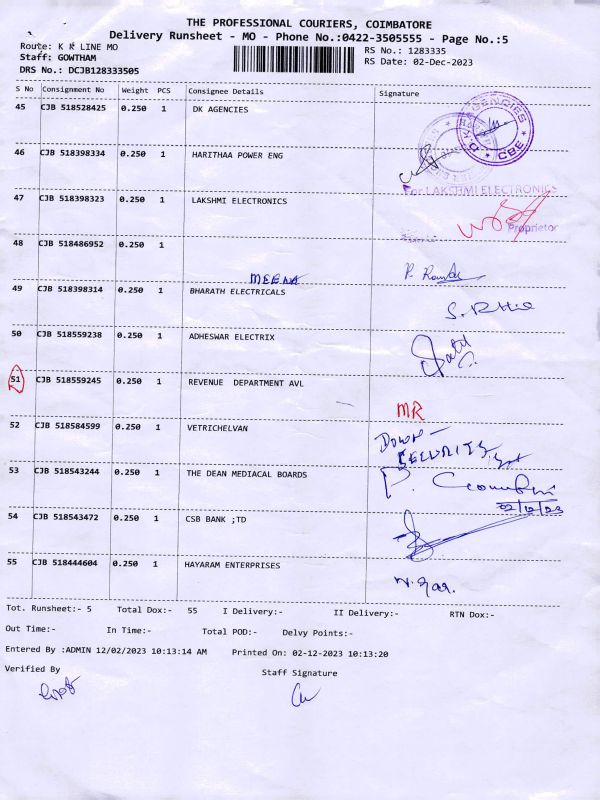 THE PROFESSIONAL COURIERS, COIMBATORE
Delivery Runsheet - MO - Phone No.:0422-3505555 - Page No.:5
Route: K K LINE MO
RS No.: 1283335
Staff: GOWTHAM
RS Date: 02-Dec-2023
DRS No.: DCJB128333505
S No Consignment No Weight PCS Consignee Details Signature
45 CJB 518528425 0.250 1 DK AGENCIES
AGENCIES
D.K.
CBE
46 CJB 518398334 0.250 1 HARITHAA POWER ENG
For LAKSHMI ELECTRONICS
47 CJB 518398323 0.250 1 LAKSHMI ELECTRONICS
Proprietor
48 CJB 518486952 0.250 1
MEENA
49 CJB 518398314 0.250 1 BHARATH ELECTRICALS
50 CJB 518559238 0.250 1 ADHESWAR ELECTRIX
51 CJB 518559245 0.250 1 REVENUE DEPARTMENT AVL
MR
52 CJB 518584599 0.250 1 VETRICHELVAN
Down-
SECURITY
53 CJB 518543244 0.250 1 THE DEAN MEDIACAL BOARDS
02/12/23
54 CJB 518543472 0.250 1 CSB BANK ;TD
55 CJB 518444604 0.250 1 HAYARAM ENTERPRISES
Tot. Runsheet:- 5 Total Dox:- 55 I Delivery:- II Delivery:- RTN Dox:-
Out Time:- In Time:- Total POD:- Delvy Points:-
Entered By :ADMIN 12/02/2023 10:13:14 AM Printed On: 02-12-2023 10:13:20
Verified By Staff Signature